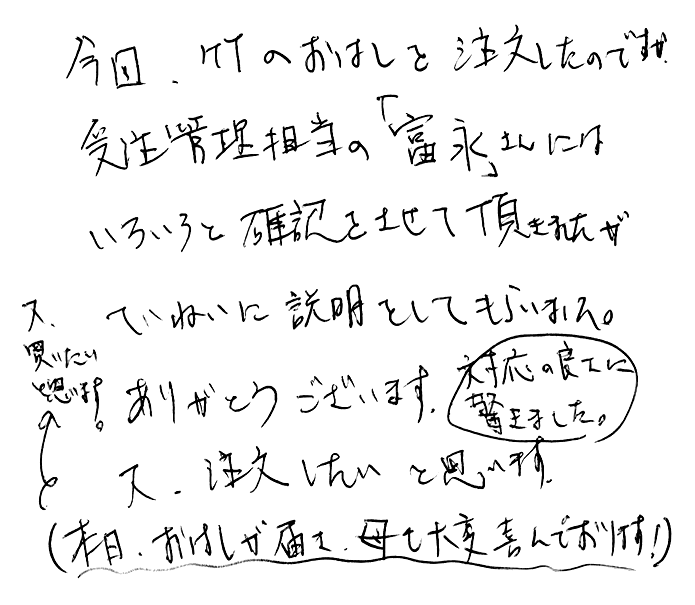 今回、竹のおはしを注文したのですが
受注管理担当の「富永」さんには
いろいろと確認をさせて頂きましたが
ていねいに説明をしてもらいました。
ありがとうございます。
対応の良さに
驚きました。
又、注文したいと思います。
又、
買いたい
と思います。
(本日、おはしが届き、母も大変喜んでおります!)